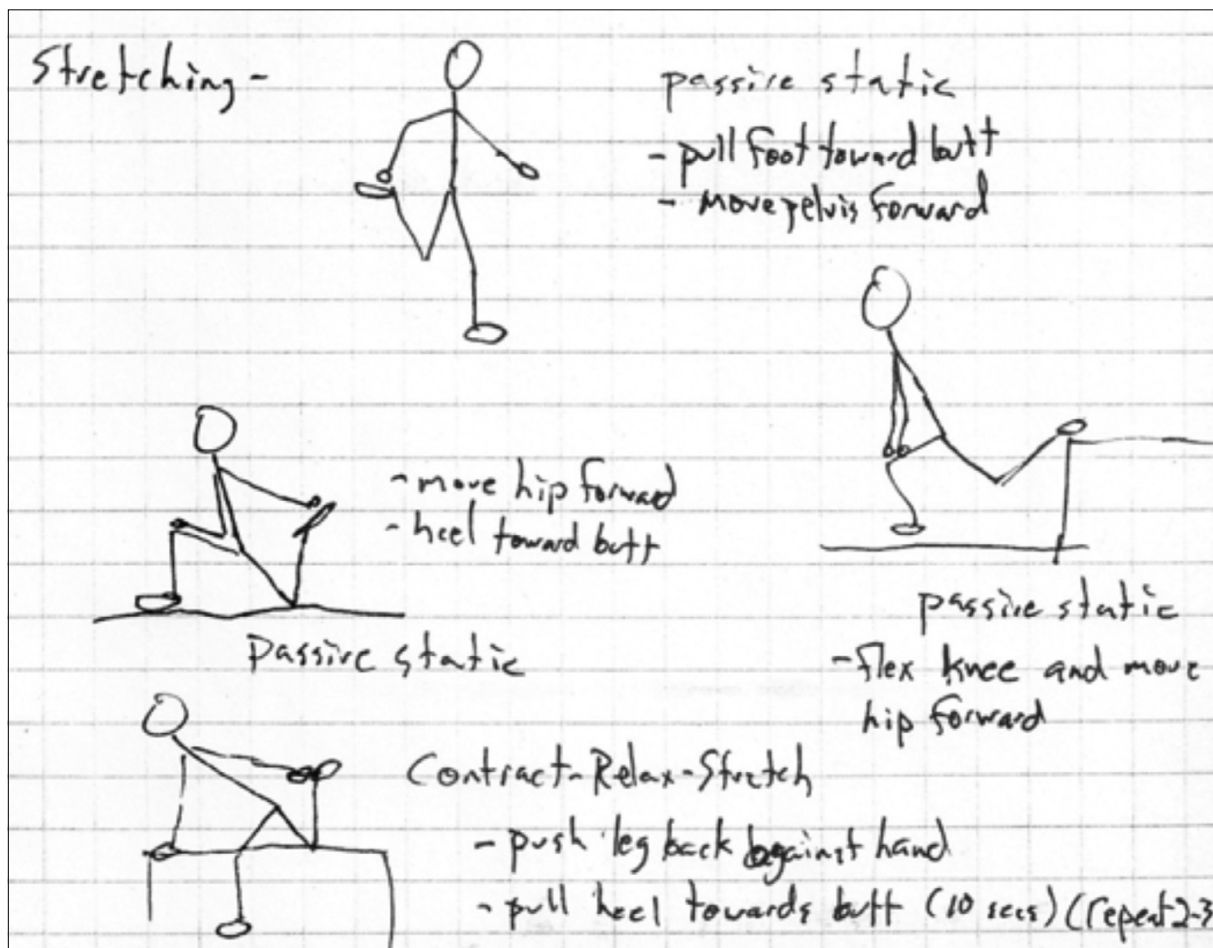 Stretching -
passive static
- pull foot toward butt
- move pelvis forward
- move hip forward
- heel toward butt
Passive static
passive static
- flex knee and move
hip forward
Contract-Relax-Stretch
- push leg back against hand
- pull heel towards butt (10 secs) (repeat 2-3